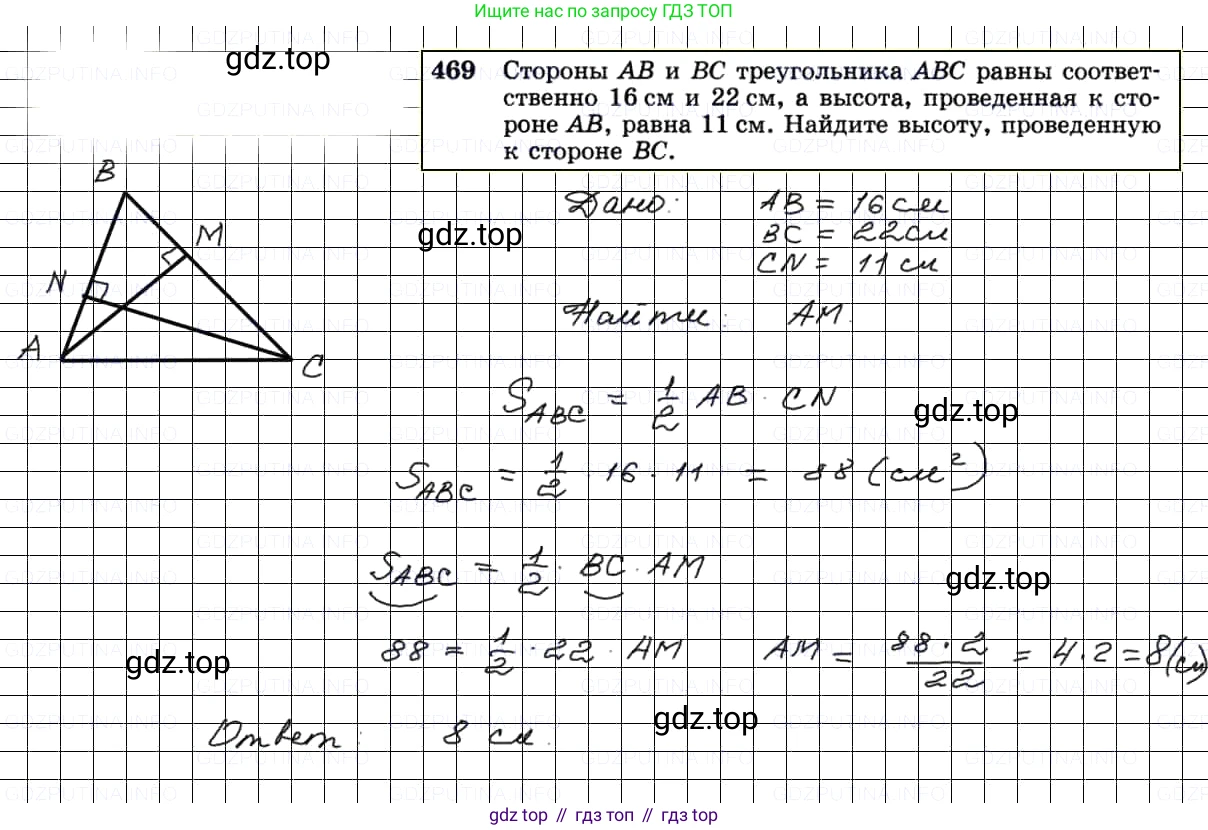 Ищите нас по запросу ГДЗ ТОП
gdz.top
469 Стороны AB и BC треугольника ABC равны соответ-
ственно 16 см и 22 см, а высота, проведенная к сто-
роне AB, равна 11 см. Найдите высоту, проведенную
к стороне BC.
B
M
N
A
C
Дано: AB = 16 см
gdz.top
BC = 22 см
CN = 11 см
Найти: AM.
S_ABC = 1/2 AB · CN
gdz.top
S_ABC = 1/2 · 16 · 11 = 88 (см²)
S_ABC = 1/2 · BC · AM
gdz.top
88 = 1/2 · 22 · AM AM = 88 · 2 / 22 = 4 · 2 = 8 (см)
gdz.top
gdz.top
Ответ: 8 см.
gdz.top // гдз топ // gdz top